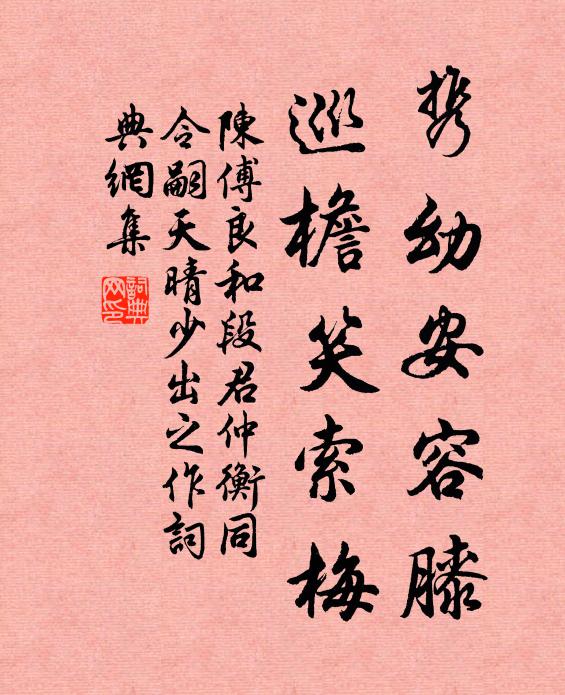 携幼安容膝
巡檐笑索梅
陳傅良和段君仲衡同
令嗣天晴少出之作詞
典網集
詞典網印